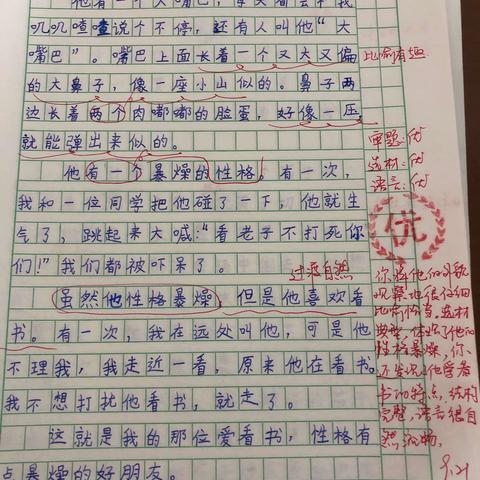 他有一个大嘴巴,每天
叽叽喳喳说个不停,还有人叫他“大
嘴巴”。嘴巴上面长着一个又大又偏
的大鼻子,像一座小山似的。鼻子两
边长着两个肉嘟嘟的脸蛋,好像一压
就能弹出来似的。
他有一个暴燥的性格。有一次,
我和一位同学把他碰了一下,他就生
气了,跳起来大喊:“看老子不打死你
们!”我们都被吓呆了。
虽然他性格暴燥,但是他喜欢看
书。有一次,我在远处叫他,可是他
不理我,我走近一看,原来他在看书。
我不想打扰他看书,就走了。
这就是我的那位爱看书,性格有
点暴燥的好朋友。
比喻有趣
审题:优
选材:优
语言:优
优
过渡自然
你将他们的外貌
观察地很仔细
比喻恰当,选材
典型,体现了他的
性格暴燥,你
还写出了他爱看
书的特点,结构
完整,语言很自
然流畅。
9.21